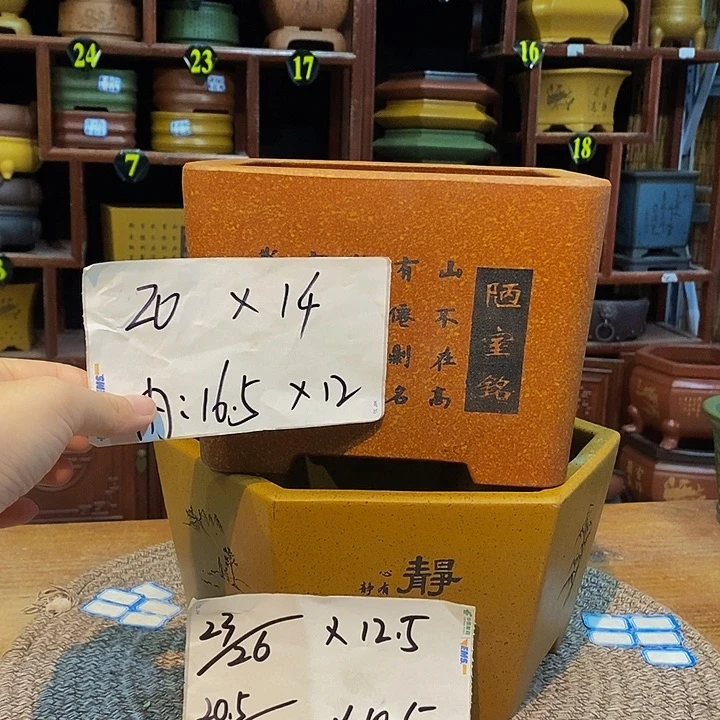 24
23
17
16
7
18
陋室銘
山不在高
有僊剘名
20 × 14
内:16.5 × 12
靜
心有静
23/26 × 12.5
20.5
EMS